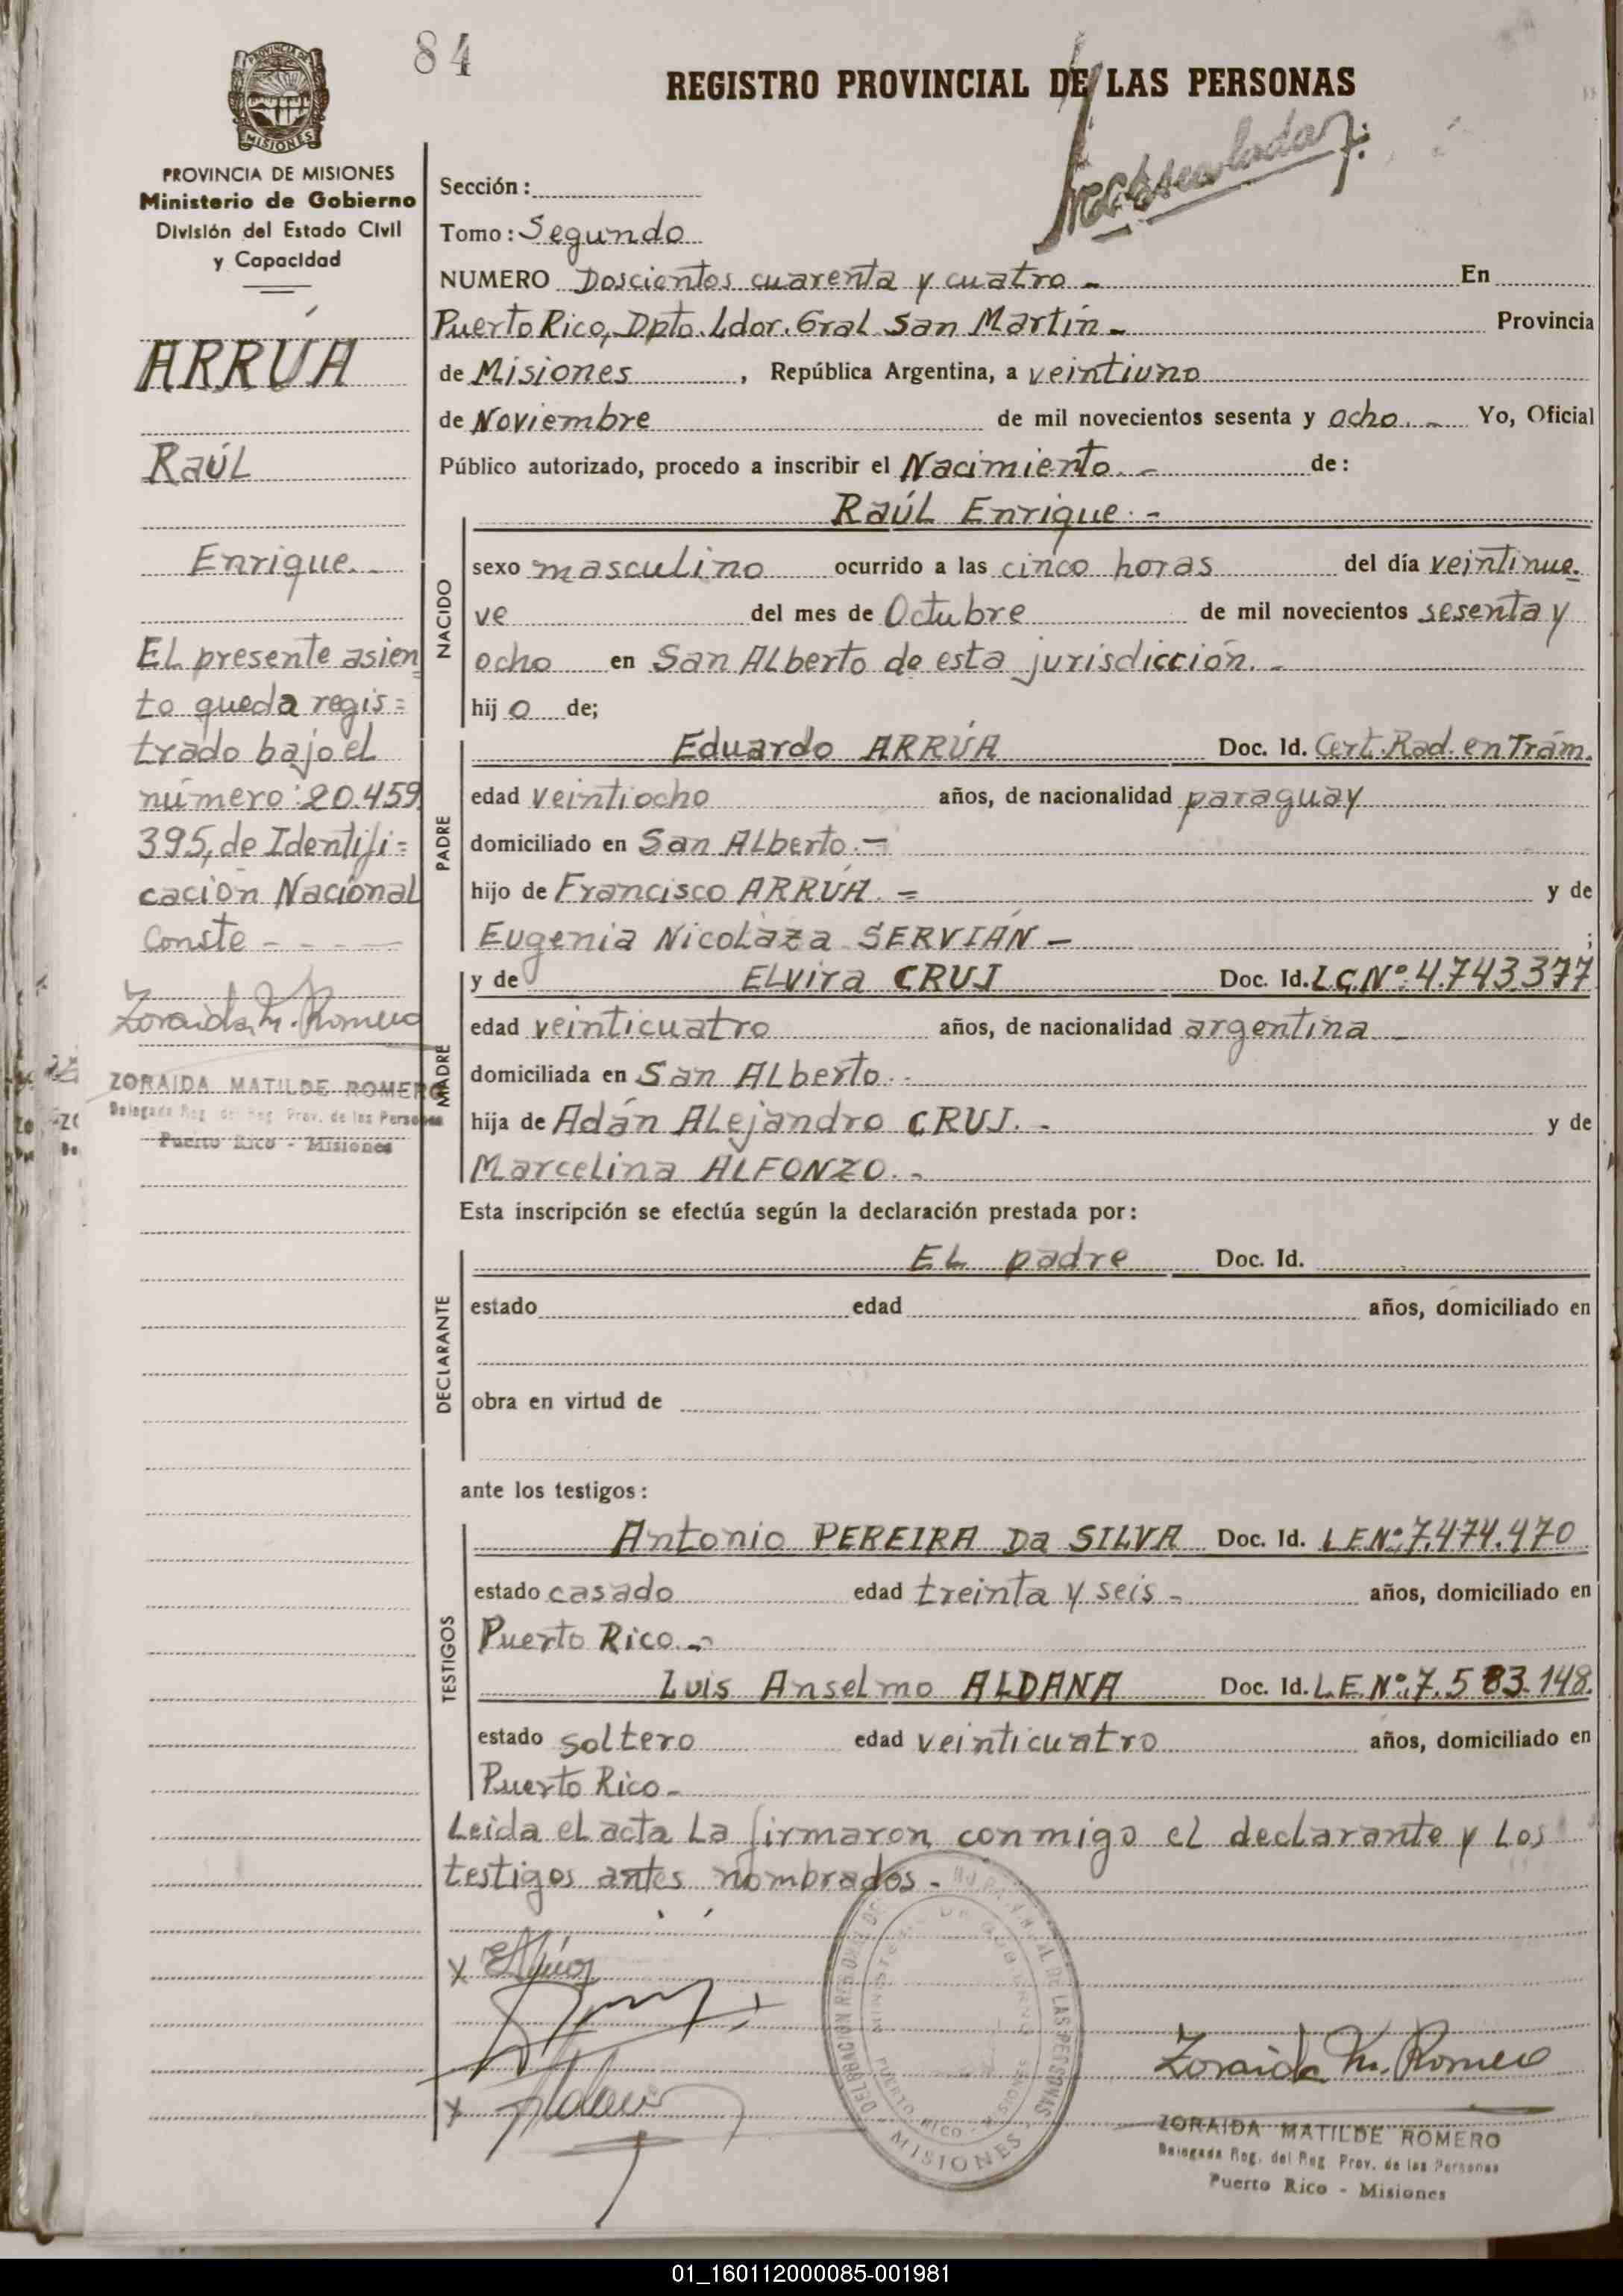 84
REGISTRO PROVINCIAL DE LAS PERSONAS
PROVINCIA DE MISIONES
Ministerio de Gobierno
División del Estado Civil
y Capacidad
MISIONES
ARRÚA
Raúl
Enrique.
El presente asien
to queda regis=
trado bajo el
número: 20.459
395, de Identifi=
cación Nacional
Conste - - - -
Zoraida M. Romero
ZORAIDA MATILDE ROMERO
Delegada Reg. del Reg. Prov. de las Personas
Puerto Rico - Misiones
Sección:
Tomo: Segundo
NUMERO Doscientos cuarenta y cuatro - En
Puerto Rico, Dpto. Ldor. Gral San Martín - Provincia
de Misiones, República Argentina, a veintiuno
de Noviembre de mil novecientos sesenta y ocho. - Yo, Oficial
Público autorizado, procedo a inscribir el Nacimiento. - de:
Raúl Enrique. -
NACIDO
sexo masculino ocurrido a las cinco horas del día veintinue-
ve del mes de Octubre de mil novecientos sesenta y
ocho en San Alberto de esta jurisdicción. -
hijo de;
PADRE
Eduardo ARRÚA Doc. Id. Cert. Rad. en Trám.
edad veintiocho años, de nacionalidad paraguay
domiciliado en San Alberto. -
hijo de Francisco ARRÚA. = y de
Eugenia Nicolaza SERVIÁN - ;
MADRE
y de Elvira CRUJ Doc. Id. L.C.Nº: 4.743.377
edad veinticuatro años, de nacionalidad argentina -
domiciliada en San Alberto. -
hija de Adán Alejandro CRUJ. - y de
Marcelina ALFONZO. -
Esta inscripción se efectúa según la declaración prestada por:
DECLARANTE
El padre Doc. Id.
estado edad años, domiciliado en
obra en virtud de
ante los testigos:
TESTIGOS
Antonio PEREIRA Da SILVA Doc. Id. L.E.Nº: 7.474.470
estado casado edad treinta y seis - años, domiciliado en
Puerto Rico. -
Luis Anselmo ALDANA Doc. Id. L.E.Nº: 7.583.148.
estado soltero edad veinticuatro años, domiciliado en
Puerto Rico -
Leida el acta la firmaron conmigo el declarante y los
testigos antes nombrados. -
DELEGACIÓN REGIONAL DE LAS PERSONAS
MINISTERIO DE GOBIERNO
PUERTO RICO - MISIONES
MISIONES
Zoraida M. Romero
ZORAIDA MATILDE ROMERO
Delegada Reg. del Reg. Prov. de las Personas
Puerto Rico - Misiones
01_160112000085-001981